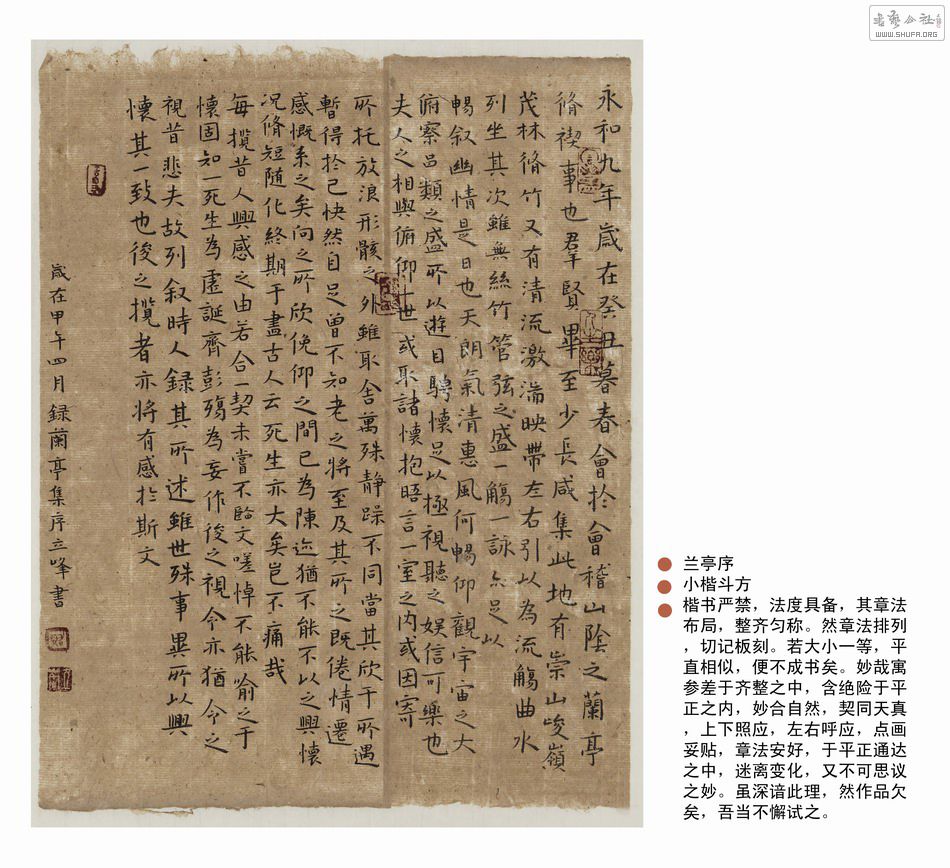 永和九年歲在癸丑暮春會於會稽山陰之蘭亭
脩禊事也羣賢畢至少長咸集此地有崇山峻嶺
茂林脩竹又有清流激湍映帶左右引以為流觴曲水
列坐其次雖無絲竹管弦之盛一觴一詠亦足以
暢叙幽情是日也天朗氣清惠風何暢仰觀宇宙之大
俯察品類之盛所以遊目騁懷足以極視聽之娛信可樂也
夫人之相與俯仰一世或取諸懷抱晤言一室之内或因寄
所托放浪形骸之外雖取舍萬殊静躁不同當其欣于所遇
暫得於己快然自足曾不知老之將至及其所之既倦情遷
感慨系之矣向之所欣俛仰之間已為陳迹猶不能不以之興懷
况脩短随化終期于盡古人云死生亦大矣豈不痛哉
每攬昔人興感之由若合一契未嘗不臨文嗟悼不能喻之于
懷固知一死生為虛誕齊彭殤為妄作後之視今亦猶今之
視昔悲夫故列叙時人録其所述雖世殊事異所以興
懷其一致也後之攬者亦將有感於斯文
歲在甲午四月録蘭亭集序立峰書
WWW.SHUFA.ORG
兰亭序
小楷斗方
楷书严禁，法度具备，其章法
布局，整齐匀称。然章法排列
，切记板刻。若大小一等，平
直相似，便不成书矣。妙哉寓
参差于齐整之中，含绝险于平
正之内，妙合自然，契同天真
，上下照应，左右呼应，点画
妥贴，章法安好，于平正通达
之中，迷离变化，又不可思议
之妙。虽深谙此理，然作品欠
矣，吾当不懈试之。